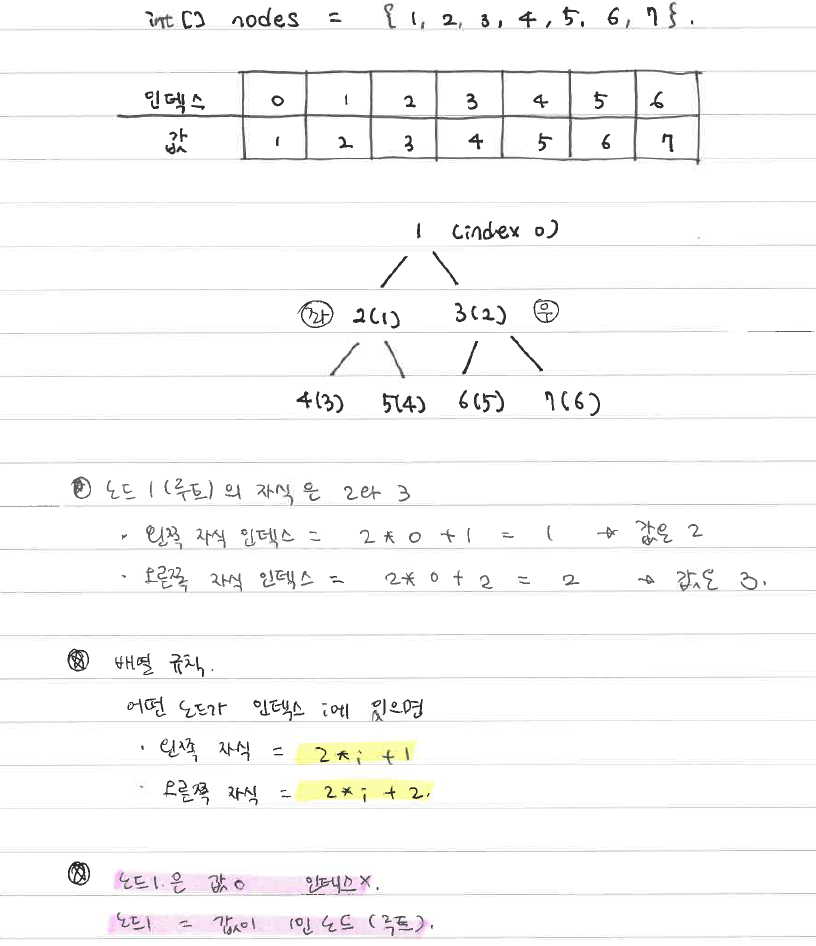 int [] nodes = { 1, 2, 3, 4, 5, 6, 7 }.
인덱스 0 1 2 3 4 5 6
값 1 2 3 4 5 6 7
1 (index 0)
좌 2(1) 3(2) 우
4(3) 5(4) 6(5) 7(6)
노드 1 (루트) 의 자식은 2와 3
· 왼쪽 자식 인덱스 = 2 * 0 + 1 = 1 → 값은 2
· 오른쪽 자식 인덱스 = 2 * 0 + 2 = 2 → 값은 3.
배열 규칙.
어떤 노드가 인덱스 i에 있으면
· 왼쪽 자식 = 2 * i + 1
· 오른쪽 자식 = 2 * i + 2.
노드1.은 값 o 인덱스 x.
노드1 = 값이 1인 노드 (루트).